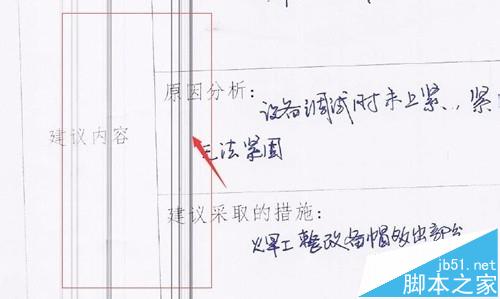 原因分析:
设备调试时未上紧、,紧
无法紧固
建议内容
建议采取的措施:
焊工整改
jb51.net
脚本之家